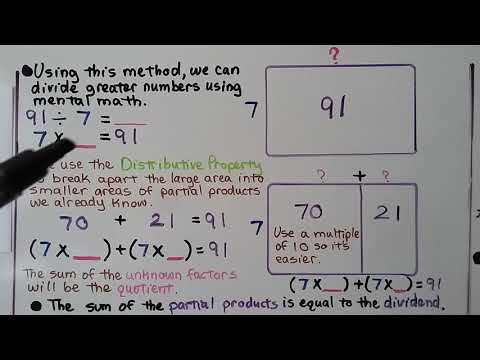 Using this method, we can
divide greater numbers using
mental math.
91 ÷ 7 = __
7 x __ = 91
use the Distributive Property
to break apart the large area into
smaller areas of partial products
we already know.
70 + 21 = 91
(7 x __) + (7 x __) = 91
The sum of the unknown factors
will be the quotient.
?
7
91
? + ?
7
70
21
Use a multiple
of 10 so its
easier.
(7 x __) + (7 x __) = 91
The sum of the partial products is equal to the dividend.